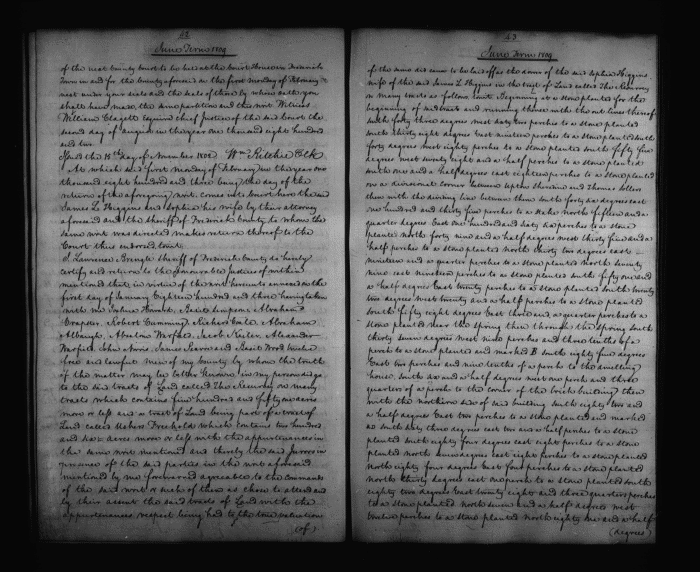 42
June Term 1809
of the next County Court to be held at the Court House in Frederick
Town in and for the County aforesaid on the first Monday of February
next under your seals and the seal of them by whose oath you
shall have made the said partition and this writ Witness
William Claggett Esquire Chief Justice of the said Court the
second day of August in the year one thousand eight hundred
and two
Issued the 15th day of November 1802 Wm Ritchie Clk
At which said first Monday of February in the year one
thousand eight hundred and three being the day of the
return of the aforegoing writ comes into Court here the said
James L Higgins and Sophia his wife by their attorney
aforesaid and the Sheriff of Frederick County to whom the
same writ was directed makes return thereof to the
Court thus indorsed to wit
I Lawrence Brengle Sheriff of Frederick County do hereby
certify and return to the honourable Justices of within
mentioned that in virtue of the writ hereunto annexed on the
first day of January Eighteen hundred and three having taken
with me Joshua Howard, Basil Simpson, Abraham
Crapster, Robert Cumming, Richard Coale, Abraham
Albaugh, Jacob Keiler, Alexander
Warfield, John James and Basil Wood twelve
free and lawful men of my County by whom the truth
of the matter may be better known in my person did go
to the said tracts of Land called The Resurvey on many
tracts which contains five hundred and fifty one acres
more or less and a tract of Land being part of a tract of
Land called Freehold which contains two hundred
and six acres more or less with the appurtenances in
the said writ mentioned and thereby the said Jurors in
presence of the said parties in the writ aforesaid
mentioned by me forewarned agreeable to the command
of the said writ or such of them as chose to attend and
by their assent the said tracts of Land with the
appurtenances, respect being had to the true valuation
(of)
43
June Term 1809
of the same did cause to be laid off as the dower of the said Sophia Higgins
wife of the said James L Higgins in the tract of Land called The Resurvey
on many tracts as follows to wit Beginning at a stone planted for the
beginning of said tracts and running thence with the out lines thereof
south forty three degrees west sixty two perches to a stone planted
south thirty eight degrees East nineteen perches to a stone planted south
forty degrees west eighty perches to a stone planted south fifty five
degrees west twenty eight and a half perches to a stone planted
south one and a half degrees east eighteen perches to a stone planted
on a divisional corner between and Thomas
then with the dividing line between them south forty six degrees east
one hundred and thirty five perches to a stake north fifteen and a
quarter degrees East one hundred and sixty six perches to a stone
planted north forty nine and a half degrees west thirty five and a
half perches to a stone planted north thirty two degrees east
nineteen and a quarter perches to a stone planted north seventy
nine east nineteen perches to a stone planted south fifty one and
a half degrees East twenty perches to a stone planted south twenty
two degrees west twenty and a half perches to a stone planted
south fifty eight degrees East three and a quarter perches to a
stone planted near the spring then through the spring south
thirty seven degrees west nine perches and three tenths of a
perch to a stone planted and marked B south eighty five degrees
East two perches and nine tenths of a perch to the dwelling
house south six and a half degrees west one perch and three
quarters of a perch to the corner of the brick building then
with the northern side of said building south eighty two and
a half degrees East two perches to a stone planted and marked
south sixty three degrees east two and a half perches to a stone
planted south eighty four degrees east eight perches to a stone
planted north nine degrees east eight perches to a stone planted
north eighty four degrees East four perches to a stone planted
north thirty degrees east one perch to a stone planted south
eighty two degrees East twenty eight and three quarters perches
to a stone planted north seven and a half degrees west
twelve perches to a stone planted north eighty one and a half
(degrees)